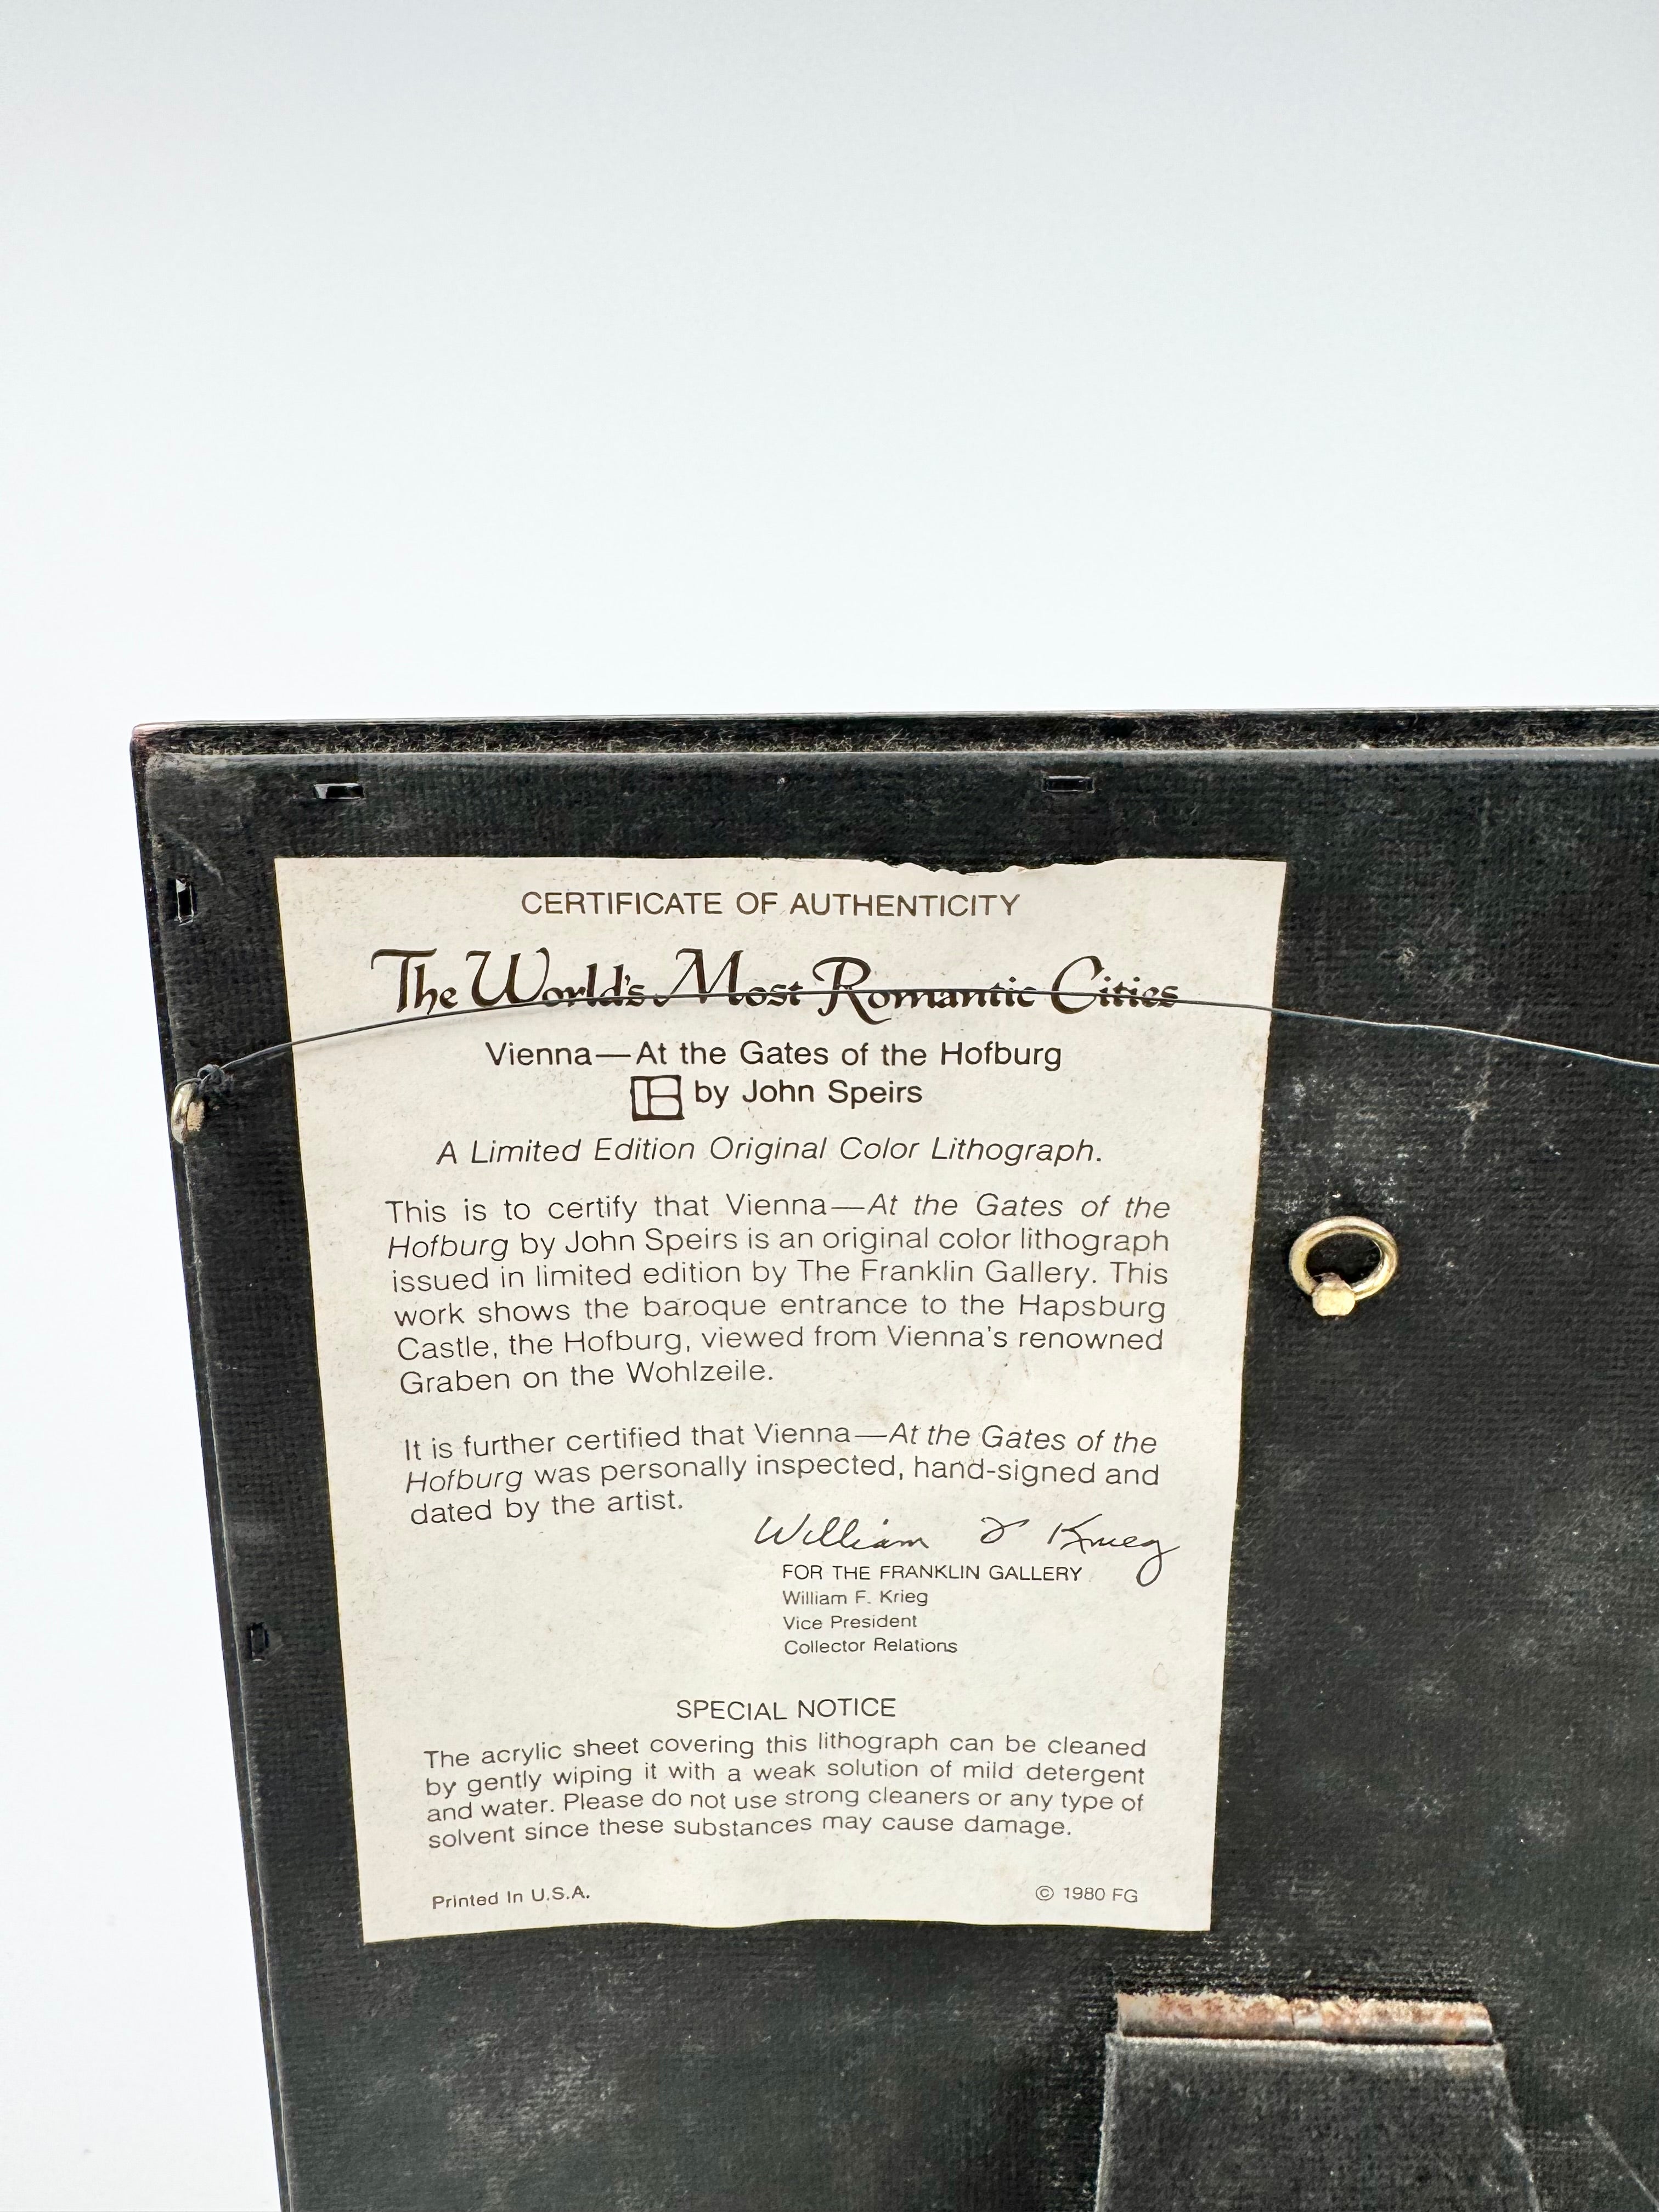 CERTIFICATE OF AUTHENTICITY
The World's Most Romantic Cities
Vienna—At the Gates of the Hofburg
by John Speirs
A Limited Edition Original Color Lithograph.
This is to certify that Vienna—At the Gates of the
Hofburg by John Speirs is an original color lithograph
issued in limited edition by The Franklin Gallery. This
work shows the baroque entrance to the Hapsburg
Castle, the Hofburg, viewed from Vienna's renowned
Graben on the Wohlzeile.
It is further certified that Vienna—At the Gates of the
Hofburg was personally inspected, hand-signed and
dated by the artist.
William F Krieg
FOR THE FRANKLIN GALLERY
William F. Krieg
Vice President
Collector Relations
SPECIAL NOTICE
The acrylic sheet covering this lithograph can be cleaned
by gently wiping it with a weak solution of mild detergent
and water. Please do not use strong cleaners or any type of
solvent since these substances may cause damage.
Printed In U.S.A.
© 1980 FG